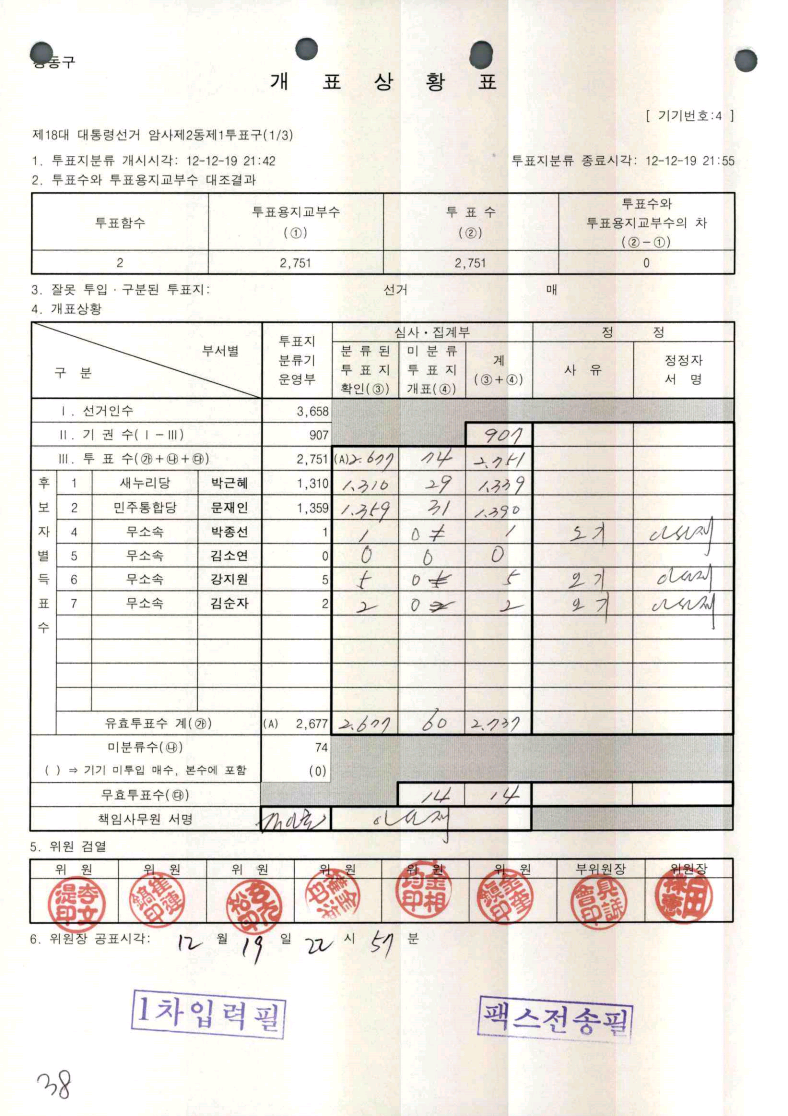 동구
개 표 상 황 표
[ 기기번호:4 ]
제18대 대통령선거 암사제2동제1투표구(1/3)
1. 투표지분류 개시시각: 12-12-19 21:42 투표지분류 종료시각: 12-12-19 21:55
2. 투표수와 투표용지교부수 대조결과
투표함수 투표용지교부수 (①) 투 표 수 (②) 투표수와 투표용지교부수의 차 (②-①)
2 2,751 2,751 0
3. 잘못 투입ㆍ구분된 투표지: 선거 매
4. 개표상황
구 분 부서별 투표지 분류기 운영부 심사ㆍ집계부 정 정
분 류 된 투 표 지 확인(③) 미 분 류 투 표 지 개표(④) 계 (③+④) 사 유 정정자 서 명
Ⅰ. 선거인수 3,658
Ⅱ. 기 권 수(Ⅰ-Ⅲ) 907 907
Ⅲ. 투 표 수(㉮+㉯+㉰) 2,751 (A)2.677 74 2.751
후보자별득표수
1 새누리당 박근혜 1,310 1.310 29 1.339
2 민주통합당 문재인 1,359 1.359 31 1.390
4 무소속 박종선 1 1 0 1 오기
5 무소속 김소연 0 0 0 0
6 무소속 강지원 5 5 0 5 오기
7 무소속 김순자 2 2 0 2 오기
유효투표수 계(㉮) (A) 2,677 2.677 60 2.737
미분류수(㉯) 74
( ) ⇒ 기기 미투입 매수, 본수에 포함 (0)
무효투표수(㉰) 14 14
책임사무원 서명
5. 위원 검열
위 원 위 원 위 원 위 원 위 원 위 원 부위원장 위원장
6. 위원장 공표시각: 12 월 19 일 22 시 57 분
1차입력필 팩스전송필
38